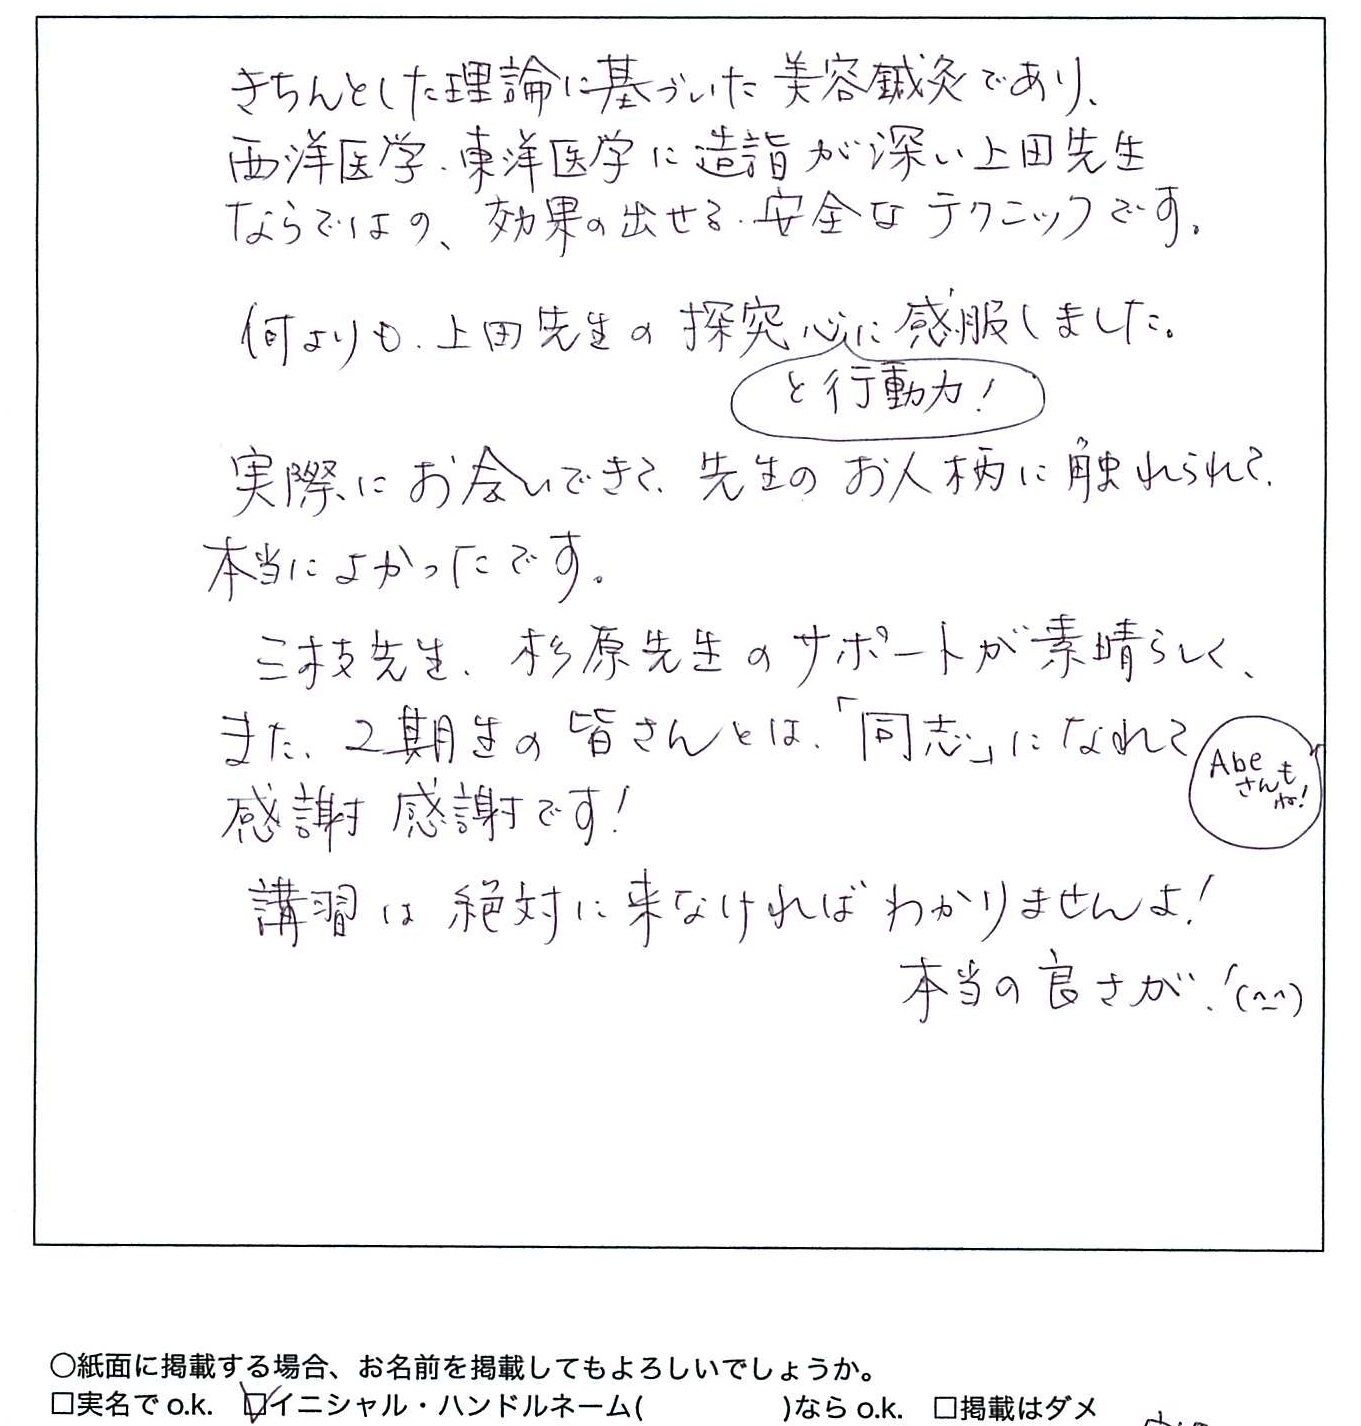 きちんとした理論に基づいた美容鍼灸であり、
西洋医学・東洋医学に造詣が深い上田先生
ならではの、効果の出せる・安全なテクニックです。
何よりも、上田先生の探究心に感服しました。
と行動力！
実際にお会いできて、先生のお人柄に触れられて、
本当によかったです。
三枝先生、杉原先生のサポートが素晴らしく、
また、2期生の皆さんとは、「同志」になれて
Abe
さんも
ね！
感謝 感謝です！
講習は絶対に来なければわかりませんよ！
本当の良さが！(^-^)
○紙面に掲載する場合、お名前を掲載してもよろしいでしょうか。
□実名でo.k. ☑イニシャル・ハンドルネーム( )ならo.k. □掲載はダメ